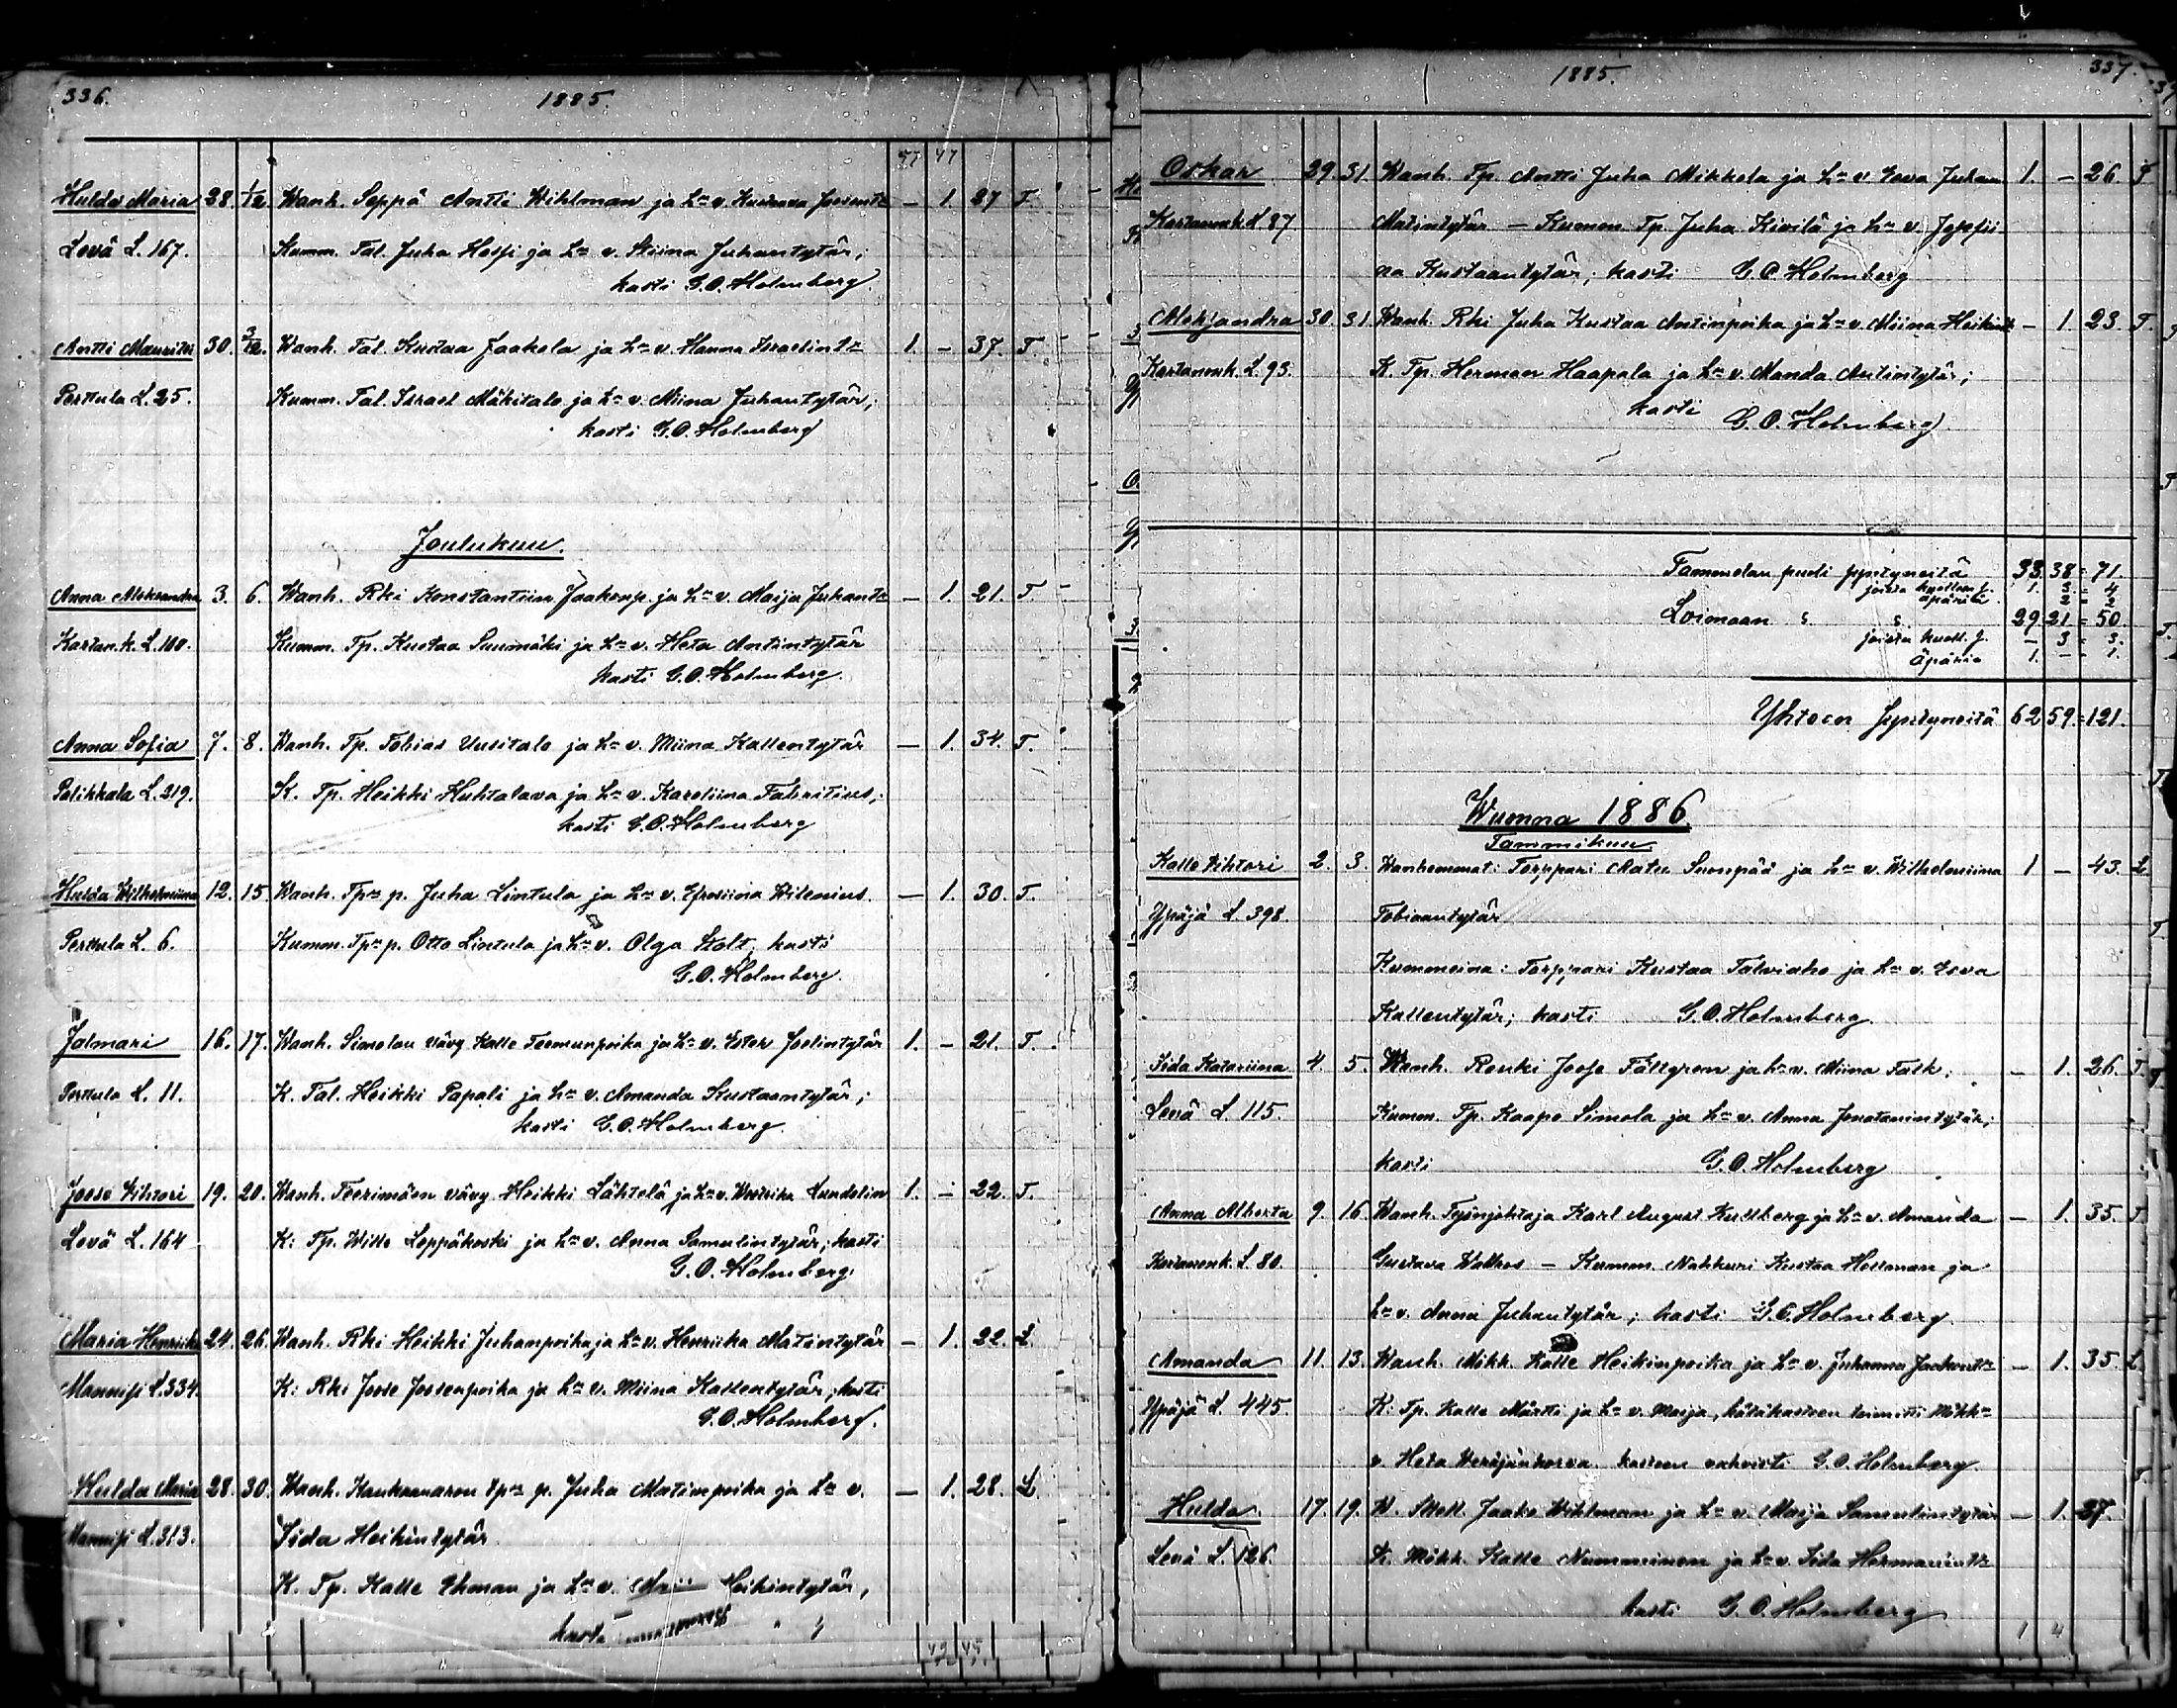 336.
1885.
Hulda Maria 28. 1/12. Wanh. Seppä Antti Wihlman ja h:n v. Kustaava — 1. 27 T.
Levä L. 167. Kumm. Tal. Juha Hossi ja h:n v. Stiina Juhantytär;
kasti G. O. Holmberg.
Antti Mauritsi 30. 3/12. Wanh. Tal. Kustaa Jaakola ja h:n v. Hanna Israelint:r 1. — 37. T.
Perttula L. 25. Kumm. Tal. Israel Mäkitalo ja h:n v. Miina Juhantytär;
kasti G. O. Holmberg
Joulukuu.
Anna Aleksandra 3. 6. Wanh. Rki Konstantiin Jaakonp. ja h:n v. Maija Juhant:r — 1. 21. T.
Kartan.k. L. 100. Kumm. Tp. Kustaa Suumäki ja h:n v. Heta Antintytär
kasti G. O. Holmberg.
Anna Sofia 7. 8. Wanh. Tp. Tobias Uusitalo ja h:n v. Miina Kallentytär — 1. 34. T.
Palikkala L. 219. K. Tp. Heikki Huhtalava ja h:n v. Karoliina
kasti G. O. Holmberg
Hulda Wilhelmiina 12. 15 Wanh. Tp:n p. Juha Lintula ja h:n v. Efrosiina Wilenius. — 1. 30. T.
Perttula L. 6. Kumm. Tp:n p. Otto Lintula ja h:n v. Olga Stolt; kasti
G. O. Holmberg.
Jalmari 16. 17. Wanh. Simolan vävy Kalle Teemunpoika ja h:n v. Ester Joelintytär 1. — 21. T.
Perttula L. 11. K. Tal. Heikki Papali ja h:n v. Amanda Kustaantytär;
kasti G. O. Holmberg.
Joose Vihtori 19. 20. Wanh. Teerimäen vävy Heikki Lähtelä ja h:n v. Lundelin 1. — 22. T.
Levä L. 164 K: Tp. Wille Leppäkoski ja h:n v. Anna Samulintytär; kasti
G. O. Holmberg.
Maria Henriika 24. 26. Wanh. Rki Heikki Juhanpoika ja h:n v. Henriika Matintytär — 1. 22. L.
Mannisi L. 334. K: Rki Joose Joosenpoika ja h:n v. Miina Kallentytär; kasti
G. O. Holmberg.
Hulda Maria 28. 30. Wanh. Kankaanaron tp:n p. Juha Matinpoika ja h:n v. — 1. 28. L.
Mannisi L. 313. Iida Heikintytär
K. Tp. Kalle Ekman ja h:n v. Heikintytär,
kasti
337.
1885.
Oskar 29. 31. Wanh. Tp. Antti Juha Mikkola ja h:n v. Eeva Juhan 1. — 26. T
Kartanonk. L 87 Matintytär — Kumm. Tp. Juha Kivilä ja h:n v. Josefii
na Kustaantytär; kasti G. O. Holmberg
Aleksandra 30. 31. Wanh. Rki Juha Kustaa Antinpoika ja h:n v. Miina Heikint:r — 1. 23. T.
Kartanonk. L. 93. K. Tp. Herman Haapala ja h:n v. Manda Antintytär;
kasti G. O. Holmberg
Tammelan puoli syntyneitä 33. 38 = 71.
joista kuoll. 1. 3 = 4
äpäriä 2 = 2
Loimaan 29 21 = 50.
joista kuoll. — 3 = 3.
äpäriä 1. — 1.
Yhteen syntyneitä 62 59 = 121.
Wuonna 1886.
Tammikuu
Kalle Vihtori 2. 3. Wanhemmat: Torppari Matu Suonpää ja h:n v. Wilhelmiina 1 — 43. L
Ypäjä L 398. Tobiaantytär
Kummeina: Torppari Kustaa Talviaho ja h:n v. Eeva
Kallentytär; kasti G. O. Holmberg.
Iida Katariina 4. 5. Wanh. Renki Joose Fältgren ja h:n v. Miina Falk; — 1. 26. T.
Levä L 115. Kumm. Tp. Kaapo Simola ja h:n v. Anna Jonatanintytär;
kasti G. O. Holmberg
Anna Alberta 9. 16 Wanh. Työnjohtaja Karl August Kullberg ja h:n v. Amanda — 1. 35. T
Kartanonk. L. 80. Gustava — Kumm. Nahkuri Kustaa Hellman ja
h:n v. Anna Juhantytär; kasti G. O. Holmberg.
Amanda 11. 13. Wanh. Mökk. Kalle Heikinpoika ja h:n v. Juhanna Jaakont:r — 1. 35. L
Ypäjä L. 445. K: Tp. Kalle Märtti ja h:n v. Maija, hätäkasteen toimitti Mökk:n
v. Heta kasteen vahvisti G. O. Holmberg.
Hulda 17. 19. W. Jaako Wihlman ja h:n v. Maija Samulintytär — 1. 27.
Levä L. 126. K. Mökk. Kalle Nummninen ja h:n v. Iida Hermanint:r
kasti G. O. Holmberg
1 4